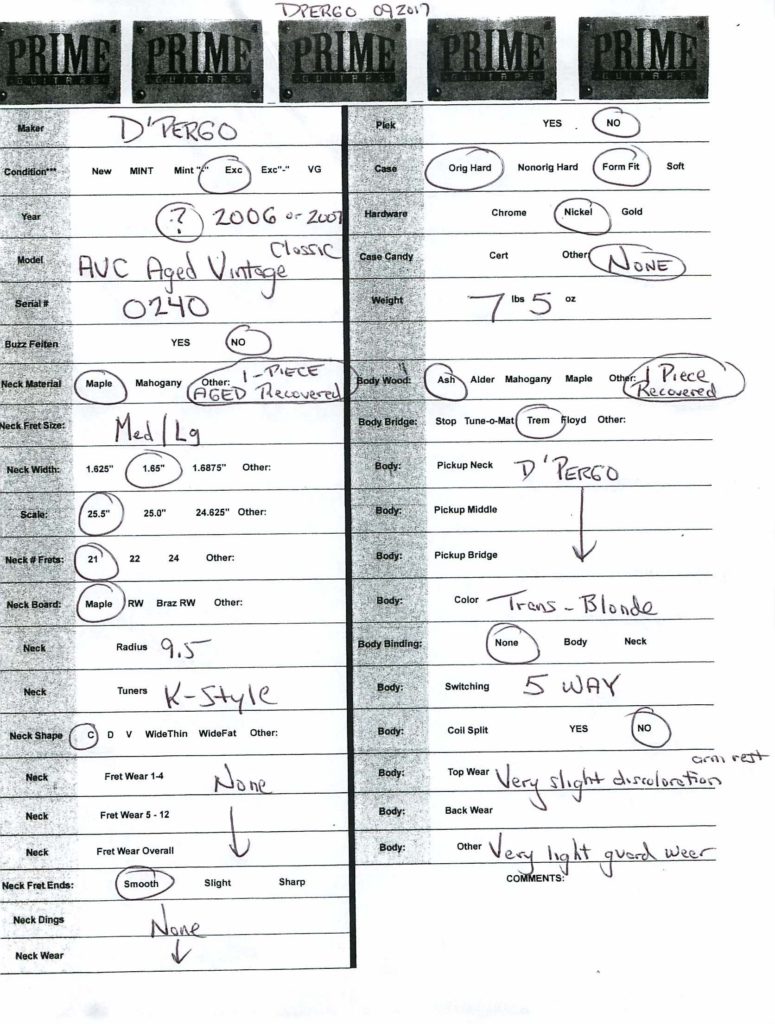 DPERGO 092017
PRIME PRIME PRIME PRIME PRIME
GUITARS GUITARS GUITARS GUITARS GUITARS
Maker D'PERGO
Condition*** New MINT Mint "-" Exc Exc"-" VG
Year ? 2006 or 2007
Model AVC Aged Vintage Classic
Serial # 0240
Buzz Feiten YES NO
Neck Material Maple Mahogany Other: 1-PIECE AGED Recovered
Neck Fret Size: Med/Lg
Neck Width: 1.625" 1.65" 1.6875" Other:
Scale: 25.5" 25.0" 24.625" Other:
Neck # Frets: 21 22 24 Other:
Neck Board: Maple RW Braz RW Other:
Neck Radius 9.5
Neck Tuners K-Style
Neck Shape C D V WideThin WideFat Other:
Neck Fret Wear 1-4 None
Neck Fret Wear 5 - 12
Neck Fret Wear Overall
Neck Fret Ends: Smooth Slight Sharp
Neck Dings None
Neck Wear
Plek YES NO
Case Orig Hard Nonorig Hard Form Fit Soft
Hardware Chrome Nickel Gold
Case Candy Cert Other NONE
Weight 7 lbs 5 oz
Body Wood: Ash Alder Mahogany Maple Other: 1 Piece Recovered
Body Bridge: Stop Tune-o-Mat Trem Floyd Other:
Body: Pickup Neck D'PERGO
Body: Pickup Middle
Body: Pickup Bridge
Body: Color Trans-Blonde
Body Binding: None Body Neck
Body: Switching 5 WAY
Body: Coil Split YES NO
Body: Top Wear Very slight discoloration arm rest
Body: Back Wear
Body: Other Very light guard wear
COMMENTS: